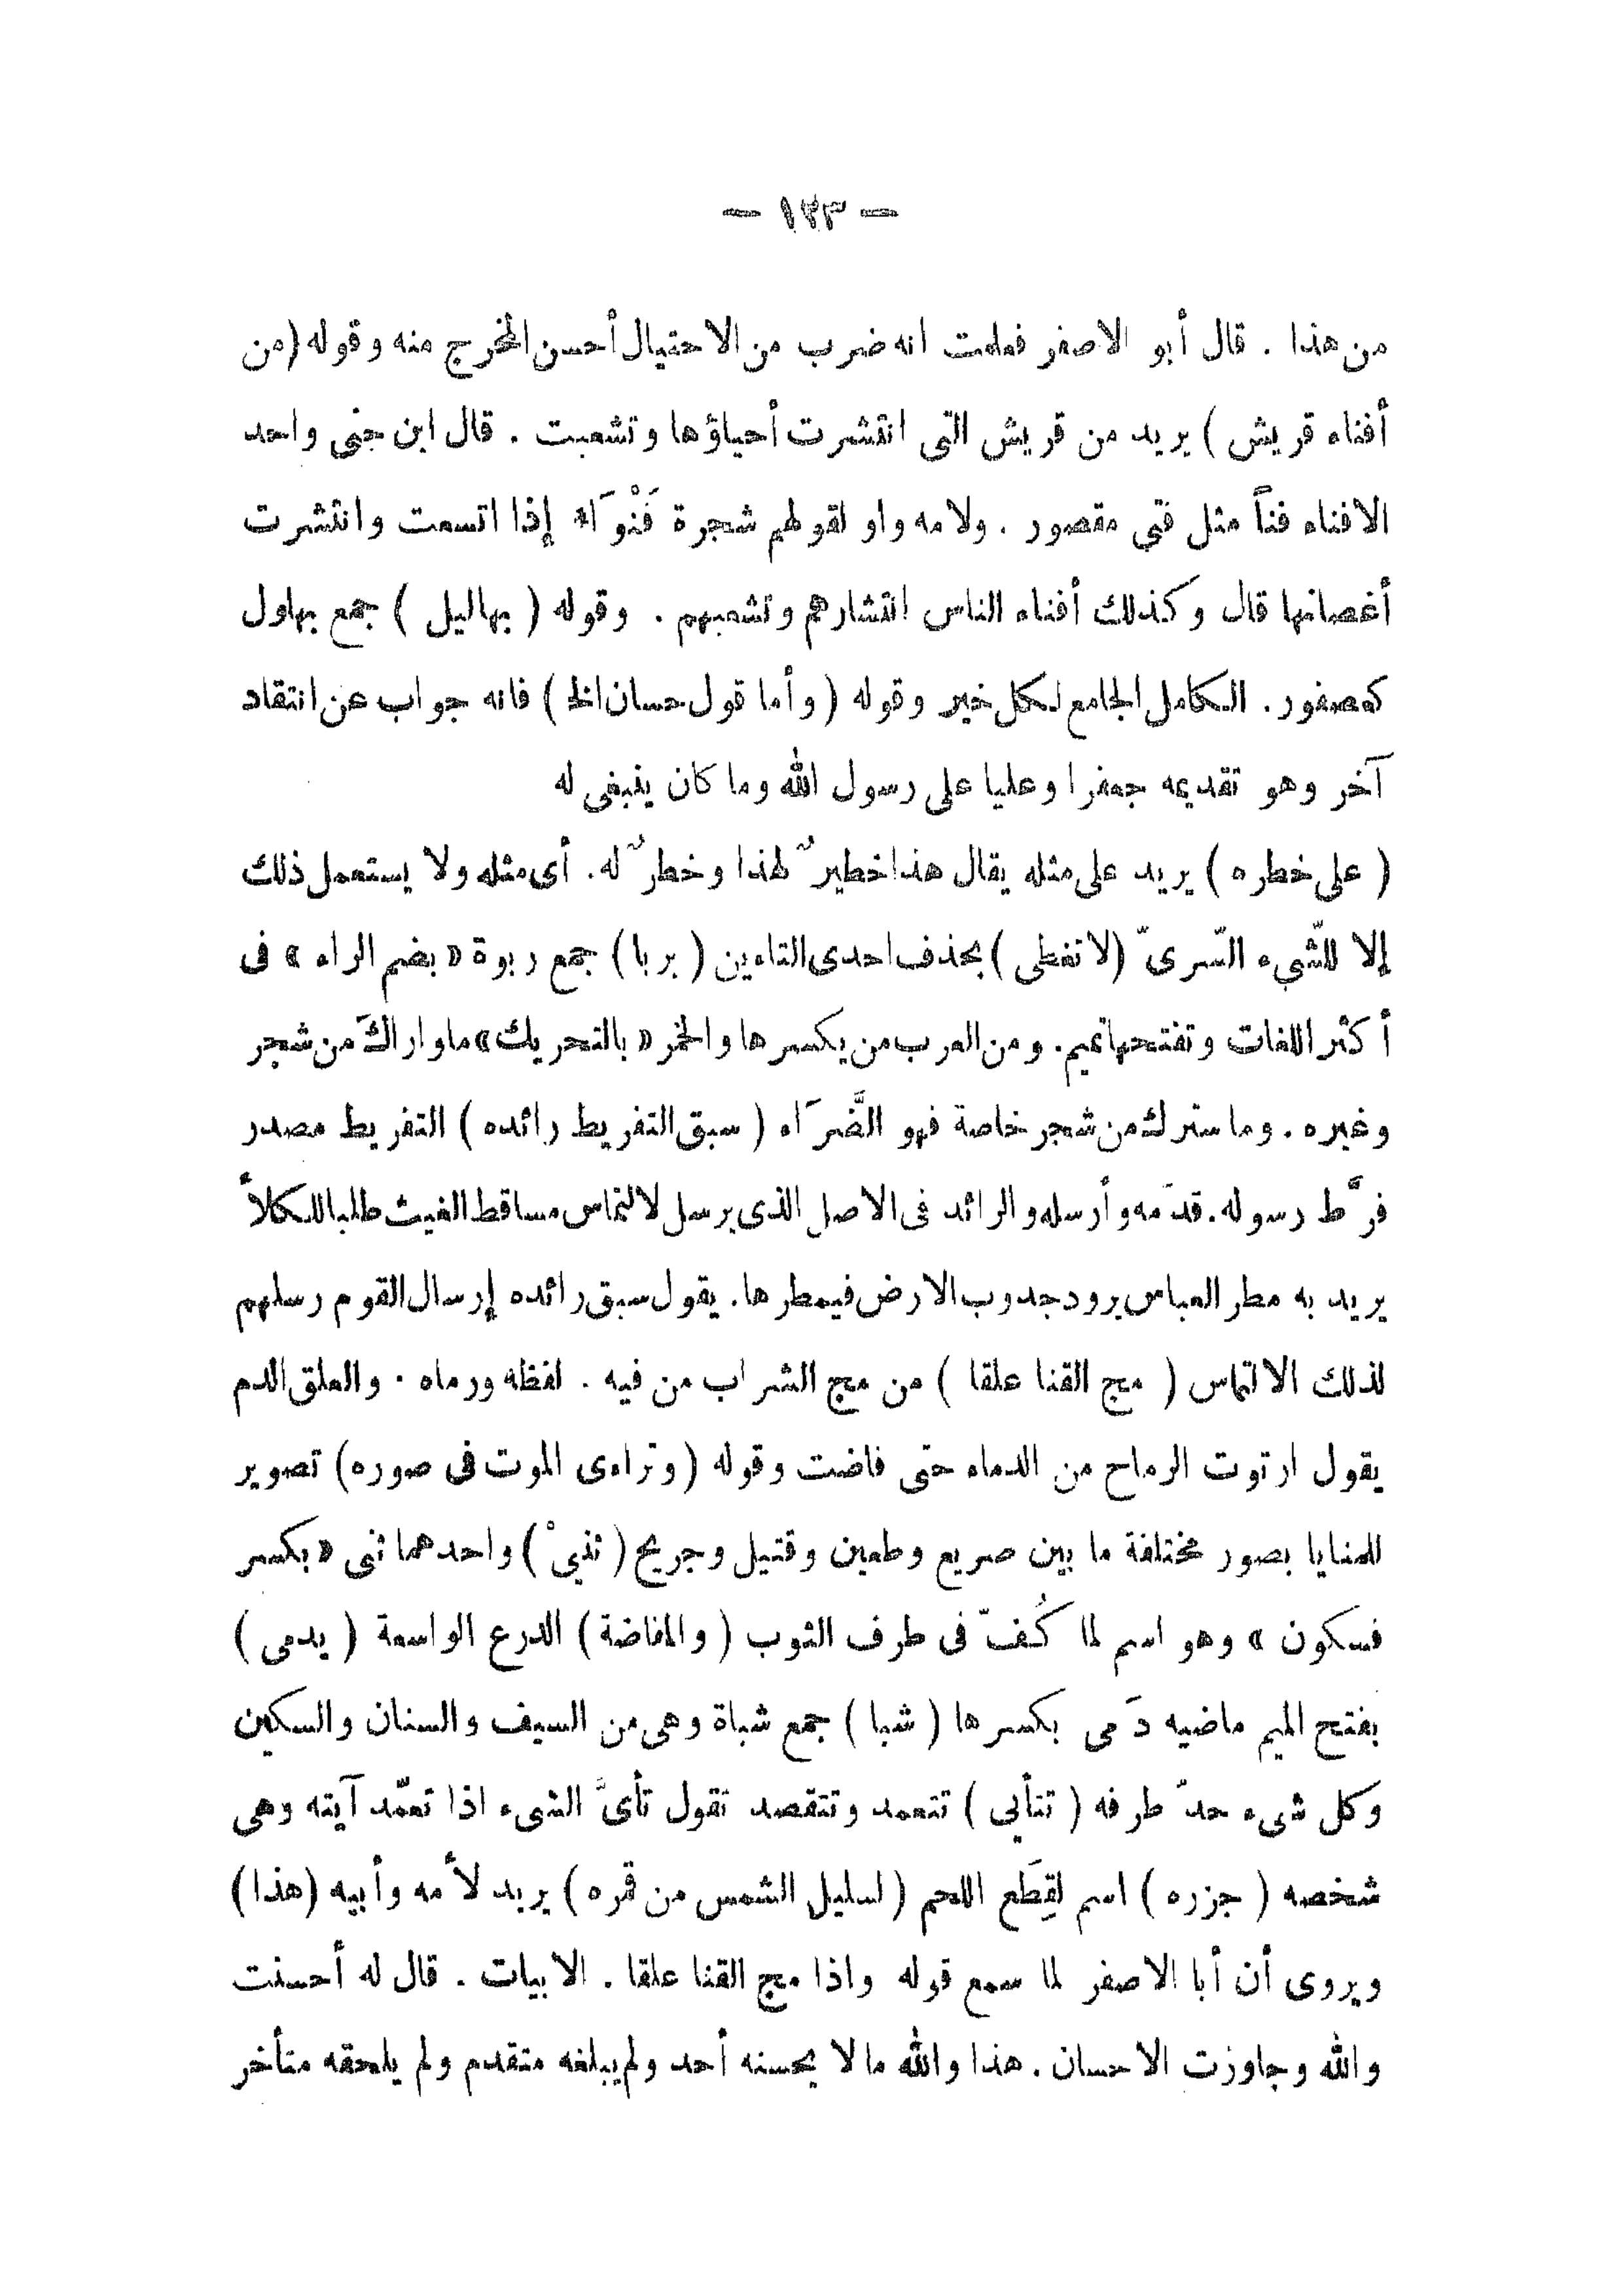 — ١٢٣ —
من هذا . قال أبو الاصفر فعلمت انه ضرب من الاحتيال أحسن المخرج منه وقوله (من
أفناء قريش ) يريد من قريش التى انتشرت أحياؤها وتشعبت . قال ابن جنى واحد
الافناء فناً مثل فتى مقصور . ولامه واو لقولهم شجرة فَنْوَاء إذا اتسعت وانتشرت
أغصانها قال وكذلك أفناء الناس انتشارهم وتشعبهم . وقوله ( بهاليل ) جمع بهلول
كعصفور . الكامل الجامع لكل خير وقوله ( وأما قول حسان الخ ) فانه جواب عن انتقاد
آخر وهو تقديمه جعفرا وعليا على رسول الله وما كان ينبغى له
( على خطره ) يريد على مثله يقال هذا خطيرٌ لهذا وخطرٌ له. أى مثله ولا يستعمل ذلك
إلا للشّىء السّرىّ (لا تغطى ) بحذف احدى التاءين ( بربا ) جمع ربوة « بضم الراء » فى
أكثر اللغات وتفتحها تميم. ومن العرب من يكسرها والخمر « بالتحريك » ماواراكَ من شجر
وغيره . وما سترك من شجر خاصة فهو الضَّرَاء ( سبق التفريط رائده ) التفريط مصدر
فرَّط رسوله. قدّمه وأرسله والرائد فى الاصل الذى يرسل لالتماس مساقط الغيث طلبا للكلأ
يريد به مطر العباس يرود جدوب الارض فيمطرها. يقول سبق رائده إرسال القوم رسلهم
لذلك الالتماس ( مج القنا علقا ) من مج الشراب من فيه . لفظه ورماه . والعلق الدم
يقول ارتوت الرماح من الدماء حتى فاضت وقوله ( وتراءى الموت فى صوره) تصوير
للمنايا بصور مختلفة ما بين صريع وطعين وقتيل وجريح ( ثنيْ ) واحدهما ثنى « بكسر
فسكون » وهو اسم لما كُفّ فى طرف الثوب ( والمفاضة ) الدرع الواسعة ( يدمى )
بفتح الميم ماضيه دَمى بكسرها ( شبا ) جمع شباة وهى من السيف والسنان والسكين
وكل شىء حدّ طرفه ( تتأبى ) تتعمد وتتقصد تقول تأىَّ الشىء اذا تعمّد آيته وهى
شخصه ( جزره ) اسم لقِطَع اللحم ( لسليل الشمس من قمره ) يريد لأمه وأبيه (هذا)
ويروى أن أبا الاصفر لما سمع قوله واذا مج القنا علقا . الابيات . قال له أحسنت
والله وجاوزت الاحسان . هذا والله مالا يحسنه أحد ولم يبلغه متقدم ولم يلحقه متأخر